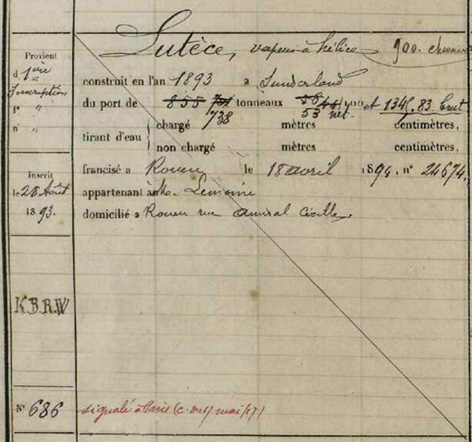 Lutèce, vapeur à hélice 900. chevaux
Provient
d 1ère
Inscription
Fº "
nº "
construit en l'an 1893 à Sunderland
du port de 855 tonneaux et 1346, 83. brut
738 53 net.
tirant d'eau chargé mètres centimètres,
non chargé mètres centimètres,
francisé à Rouen le 18 avril 1894, nº 24674.
Inscrit
le 28 Août
1893.
appartenant à M. Lemoine
domicilié à Rouen rue Amiral Cécille,
K.B.R.W
Nº 686
signalé à Paris mai